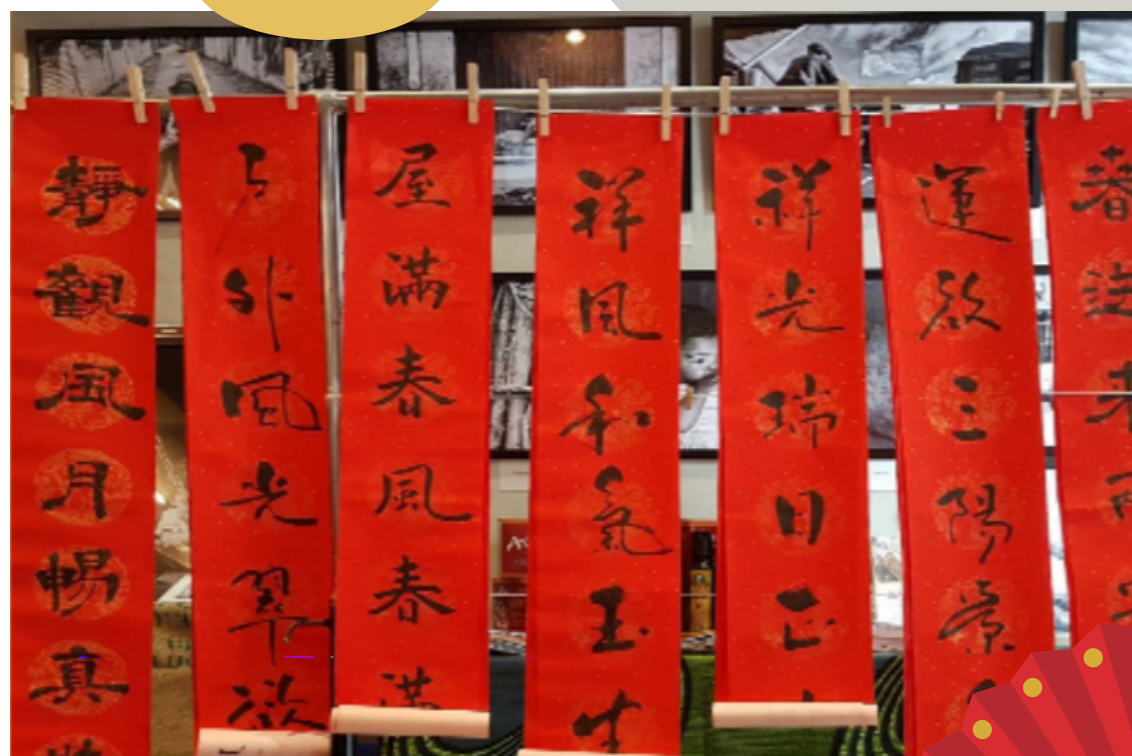 靜觀風月暢真
戶外風光翠欲
屋滿春風春滿
祥風和氣玉生
祥光瑞日正
運啟三陽景
春